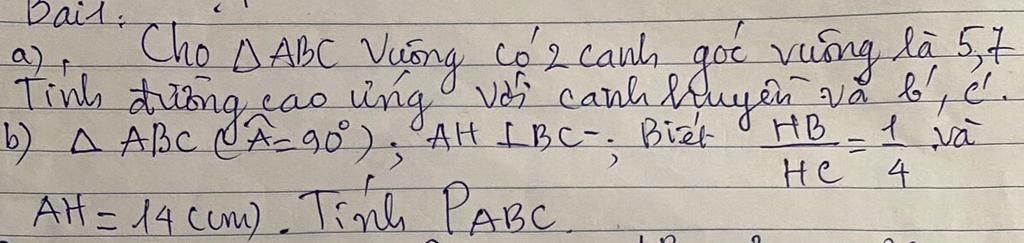 Bài 1:
a), Cho △ABC vuông có 2 cạnh góc vuông là 5,7
Tính đường cao ứng với cạnh huyền và b', c'.
b) △ ABC (Â=90°); AH ⊥ BC; Biết HB/HC = 1/4 và
AH = 14 (cm). Tính P ABC.